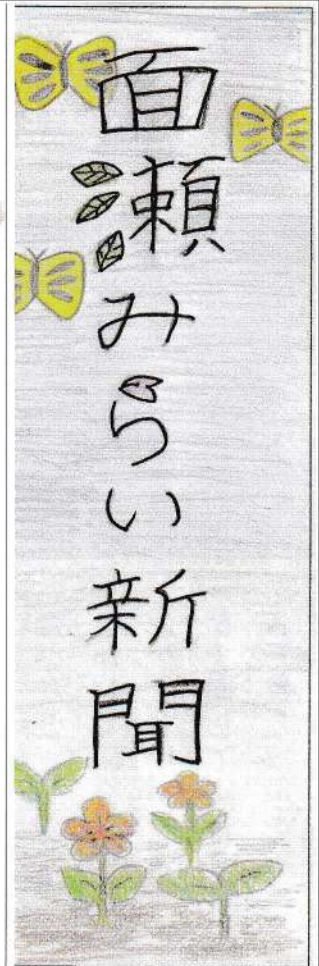 面瀬みらい新聞